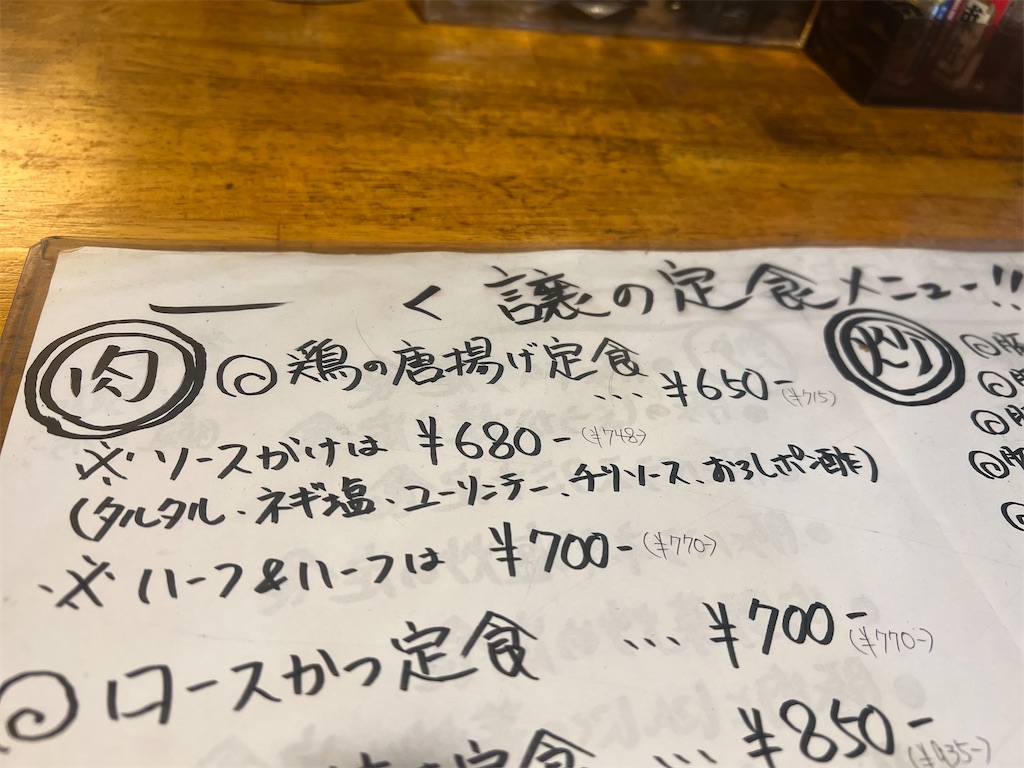 一 く 譲の定食メニュー!!
肉 鶏の唐揚げ定食 … ¥650- (¥715)
※ ソースがけは ¥680- (¥748-)
(タルタル、ネギ塩、ユーリンチー、チリソース、おろしポン酢)
※ ハーフ&ハーフは ¥700- (¥770-)
ロースかつ定食 … ¥700- (¥770-)
定食 … ¥850- (¥935-)
炒
豚